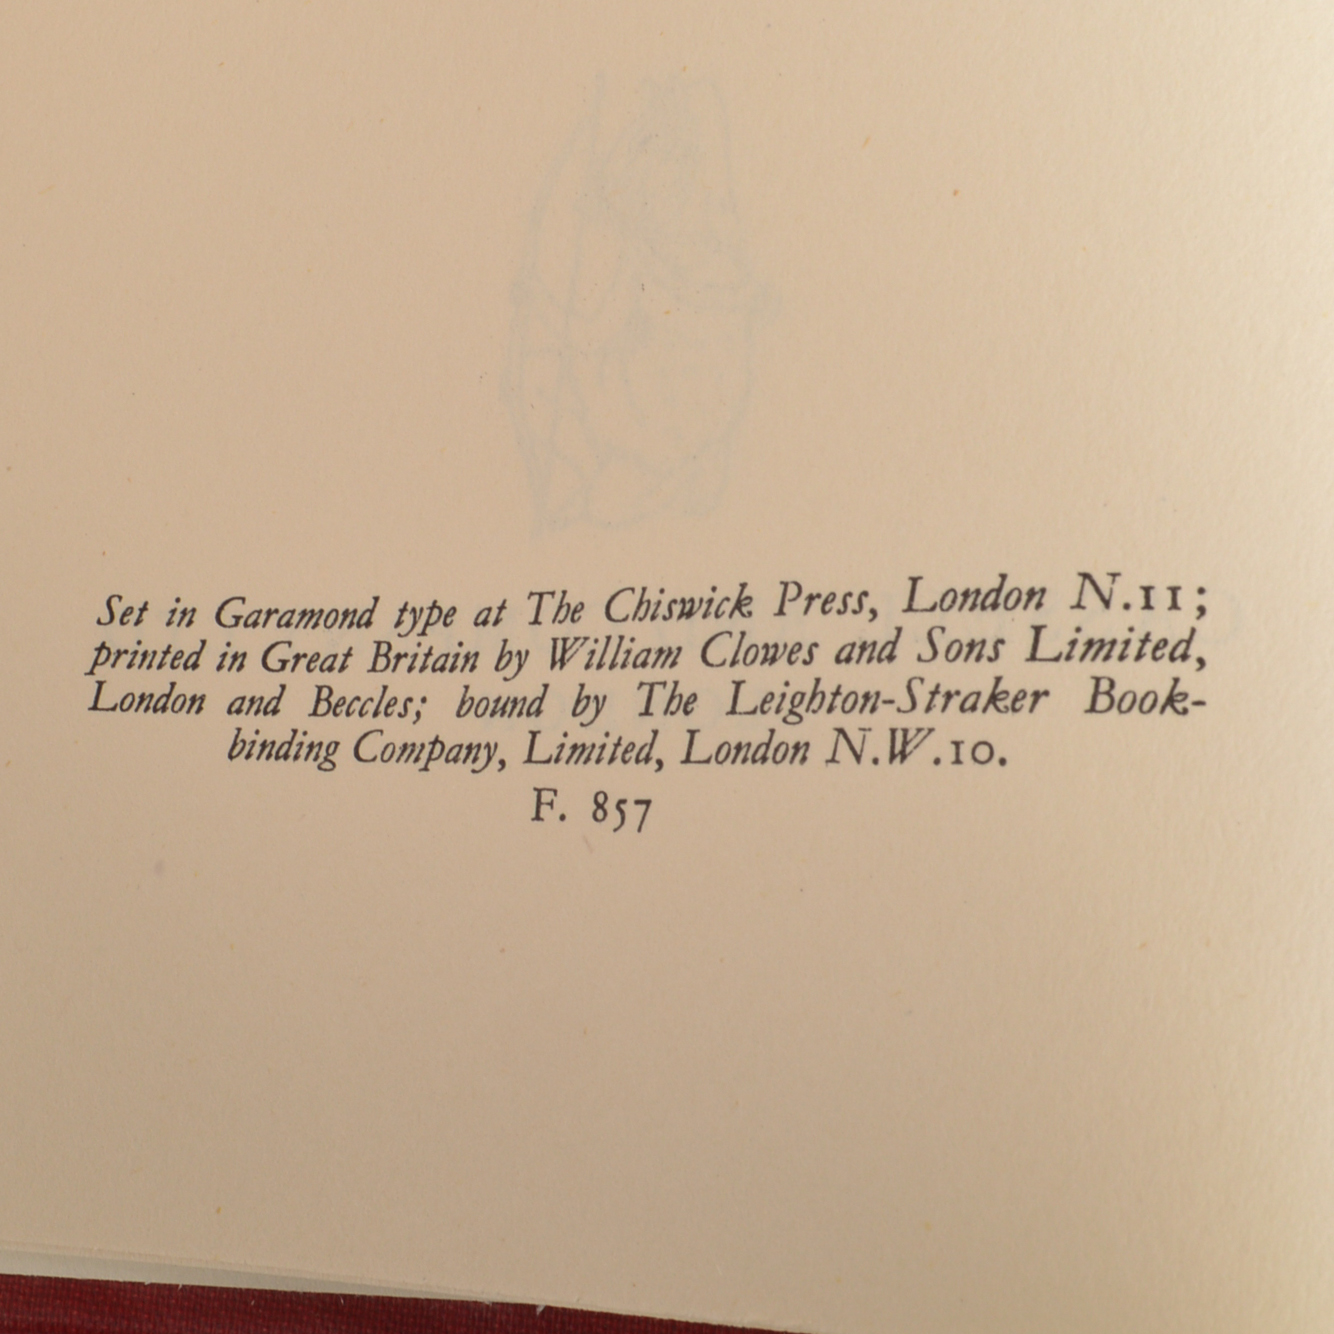 Set in Garamond type at The Chiswick Press, London N.11;
printed in Great Britain by William Clowes and Sons Limited,
London and Beccles; bound by The Leighton-Straker Book-
binding Company, Limited, London N.W.10.
F. 857